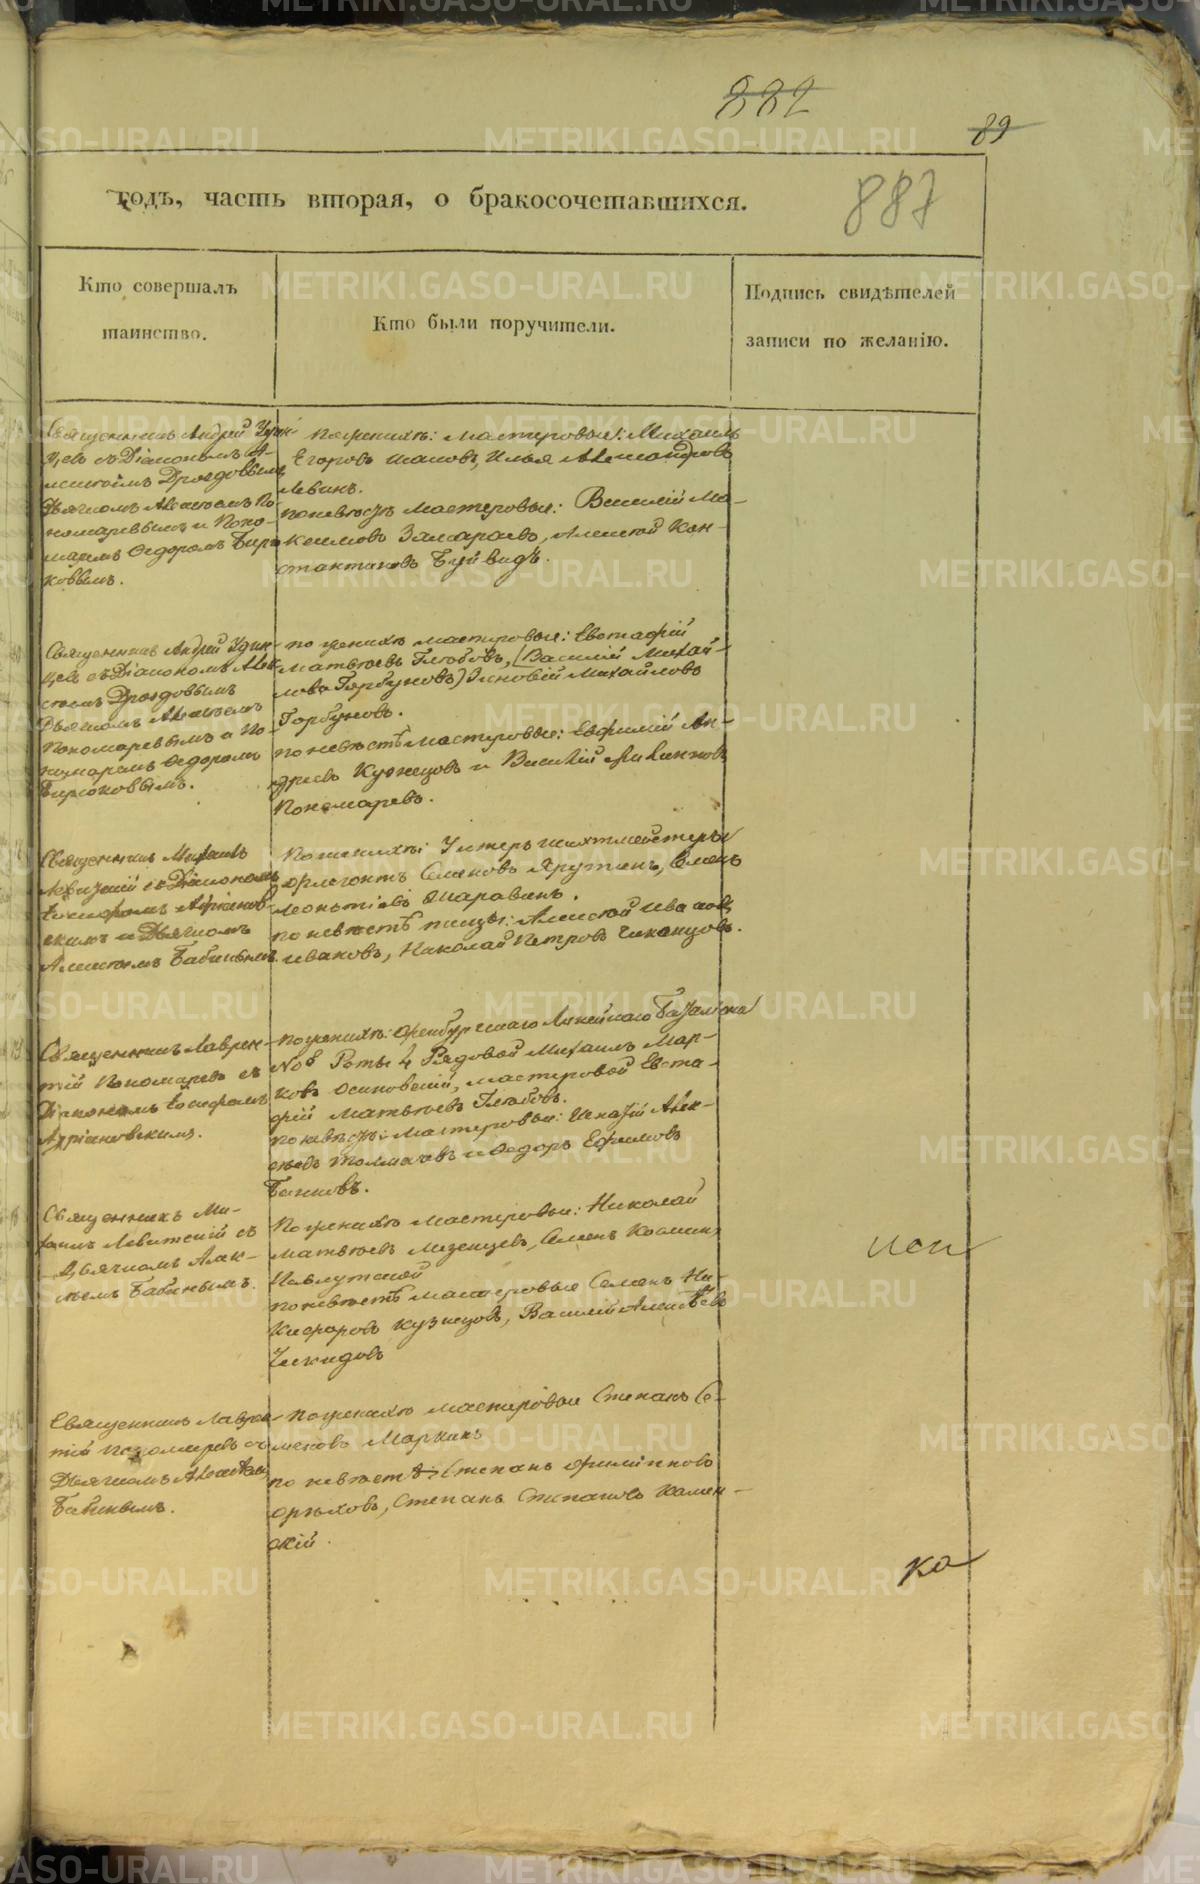 882
89
887
годъ, часть вторая, о бракосочетавшихся.
Кто совершалъ
таинство.
Кто были поручители.
Подпись свидѣтелей
записи по желанію.
Священникъ Андрей Удин-
цевъ съ Діакономъ
Дроздовымъ
Дьячкомъ Алексѣемъ По-
номаревымъ и Поно-
маремъ Ѳедоромъ Бирю-
ковымъ.
По женихѣ: мастеровые: Михаилъ
Егоровъ Илья Александровъ
Левинъ.
По невѣстѣ мастеровые: Василій Ма-
ксимовъ Замараевъ, Алексѣй Кон-
стантиновъ
Священникъ Андрей Удин-
цевъ съ Діакономъ Алек-
сѣемъ Дроздовымъ
Дьячкомъ Алексѣемъ
Пономаревымъ и По-
номаремъ Ѳедоромъ
Бирюковымъ.
по женихѣ мастеровые: Евстафій
Матвѣевъ Глѣбовъ, (Василій Михай-
ловъ Горбуновъ) Зиновій Михайловъ
Горбуновъ.
по невѣстѣ мастеровые: Ефимій Ан-
дреевъ Кузнецовъ и Василій
Пономаревъ.
Священникъ Михаилъ
Левитскій съ Діакономъ
Адріанов-
скимъ и Дьячкомъ
Алексѣемъ Бабинымъ
По женихѣ: Унтеръ шихтмейстеры
Семеновъ Ярутинъ, Семенъ
Леонтіевъ Шаравинъ.
по невѣстѣ писцы: Алексѣй Ивановъ
Ивановъ, Николай Петровъ
Священникъ Лаврен-
тій Пономаревъ съ
Діакономъ
Адріановскимъ.
По женихѣ: Оренбургскаго Линейнаго Баталіона
№ 8 Роты 4 Рядовой Михаилъ Мар-
ковъ Осиновскій, мастеровой Евста-
фій Матвѣевъ Глѣбовъ.
По невѣстѣ: Мастеровые: Игнатій Алек-
сѣевъ Толмачевъ и Ѳедоръ Ефимовъ
Священникъ Ми-
хаилъ Левитскій съ
Дьячкомъ Алек-
сѣемъ Бабинымъ.
По женихѣ мастеровые: Николай
Матвѣевъ Мезенцевъ, Семенъ Козминъ
Павлутской
по невѣстѣ мастеровые Семенъ Ни-
кифоровъ Кузнецовъ, Василій Алексѣевъ
Чекидовъ
Священникъ Лаврен-
тій Пономаревъ съ
Дьячкомъ Алексѣемъ
Бабинымъ.
По женихѣ мастеровые Степанъ Се-
меновъ Маркинъ
по невѣстѣ Степанъ Филипповъ
Орѣховъ, Степанъ Степановъ Камен-
скій.
ка